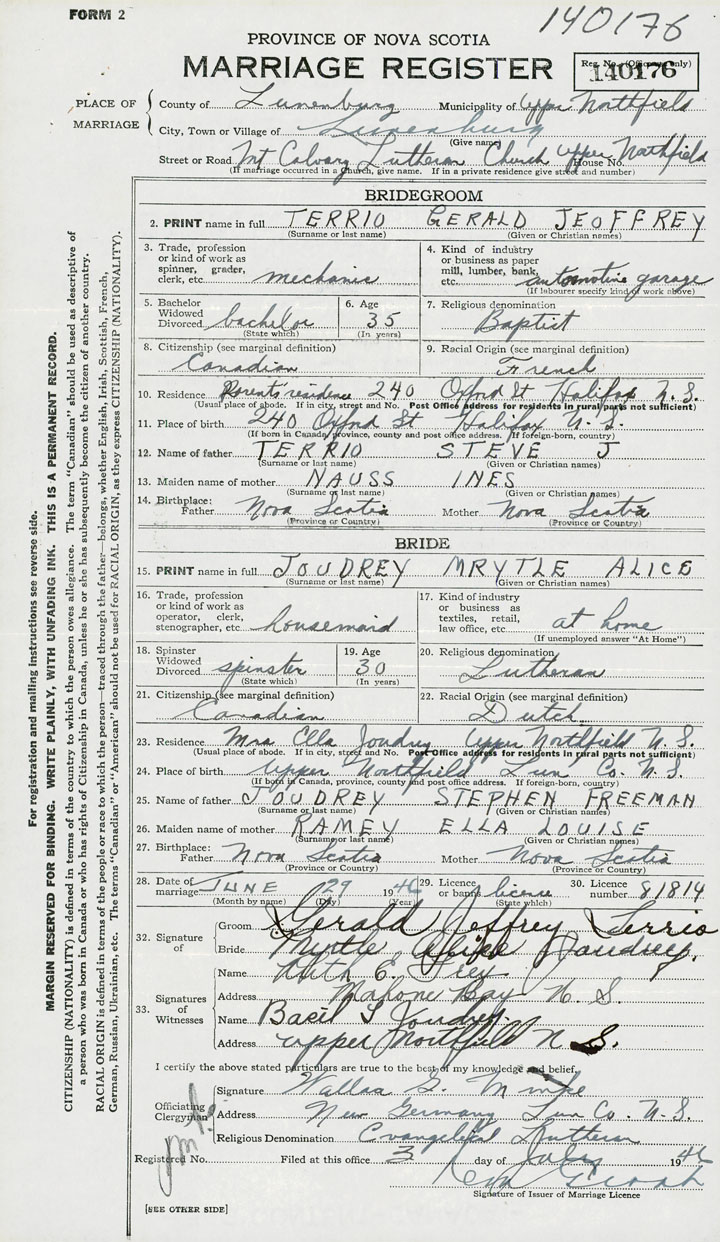 FORM 2
140176
PROVINCE OF NOVA SCOTIA
MARRIAGE REGISTER
Reg. No. (Office use only)
140176
PLACE OF MARRIAGE
County of Lunenburg Municipality of Upper Northfield
City, Town or Village of Lunenburg
(Give name)
Street or Road Mt Calvary Lutheran Church Upper Northfield House No.
(If marriage occurred in a Church, give name. If in a private residence give street and number)
BRIDEGROOM
2. PRINT name in full TERRIO GERALD JEOFFREY
(Surname or last name) (Given or Christian names)
3. Trade, profession or kind of work as spinner, grader, clerk, etc. mechanic
4. Kind of industry or business as paper mill, lumber, bank, etc. automotive garage
(If labourer specify kind of work above)
5. Bachelor Widowed Divorced bachelor
(State which)
6. Age 35
(In years)
7. Religious denomination
Baptist
8. Citizenship (see marginal definition)
Canadian
9. Racial Origin (see marginal definition)
French
10. Residence Parents' residence 240 Oxford St Halifax N.S.
(Usual place of abode. If in city, street and No. Post Office address for residents in rural parts not sufficient)
11. Place of birth 240 Oxford St Halifax N.S.
(If born in Canada, province, county and post office address. If foreign-born, country)
12. Name of father TERRIO STEVE J
(Surname or last name) (Given or Christian names)
13. Maiden name of mother NAUSS INES
(Surname or last name) (Given or Christian names)
14. Birthplace: Father Nova Scotia Mother Nova Scotia
(Province or Country) (Province or Country)
BRIDE
15. PRINT name in full JOUDREY MRYTLE ALICE
(Surname or last name) (Given or Christian names)
16. Trade, profession or kind of work as operator, clerk, stenographer, etc. housemaid
17. Kind of industry or business as textiles, retail, law office, etc. at home
(If unemployed answer "At Home")
18. Spinster Widowed Divorced spinster
(State which)
19. Age 30
(In years)
20. Religious denomination
Lutheran
21. Citizenship (see marginal definition)
Canadian
22. Racial Origin (see marginal definition)
Dutch
23. Residence Mrs Ella Joudrey Upper Northfield N.S.
(Usual place of abode. If in city, street and No. Post Office address for residents in rural parts not sufficient)
24. Place of birth Upper Northfield Lun Co. N.S.
(If born in Canada, province, county and post office address. If foreign-born, country)
25. Name of father JOUDREY STEPHEN FREEMAN
(Surname or last name) (Given or Christian names)
26. Maiden name of mother RAMEY ELLA LOUISE
(Surname or last name) (Given or Christian names)
27. Birthplace: Father Nova Scotia Mother Nova Scotia
(Province or Country) (Province or Country)
28. Date of marriage JUNE 29 1946
(Month by name) (Day) (Year)
29. Licence or banns license
(State which)
30. Licence number 81814
32. Signature of
Groom Gerald Jeffrey Terrio
Bride Myrtle Alice Joudrey.
33. Signatures of Witnesses
Name Ruth E.
Address Mahone Bay N. S.
Name Basil S Joudrey.
Address Upper Northfield N. S.
I certify the above stated particulars are true to the best of my knowledge and belief,
Officiating Clergyman
Signature G.
Address New Germany Lun Co. N.S.
Religious Denomination Evangelical Lutheran
Registered No. Filed at this office 3 day of July 1946
Signature of Issuer of Marriage Licence
[SEE OTHER SIDE]
For registration and mailing instructions see reverse side.
MARGIN RESERVED FOR BINDING. WRITE PLAINLY, WITH UNFADING INK. THIS IS A PERMANENT RECORD.
CITIZENSHIP (NATIONALITY) is defined in terms of the country to which the person owes allegiance. The term "Canadian" should be used as descriptive of
a person who was born in Canada or who has rights of Citizenship in Canada, unless he or she has subsequently become the citizen of another country.
RACIAL ORIGIN is defined in terms of the people or race to which the person—traced through the father—belongs, whether English, Irish, Scottish, French,
German, Russian, Ukrainian, etc. The terms "Canadian" or "American" should not be used for RACIAL ORIGIN, as they express CITIZENSHIP (NATIONALITY).